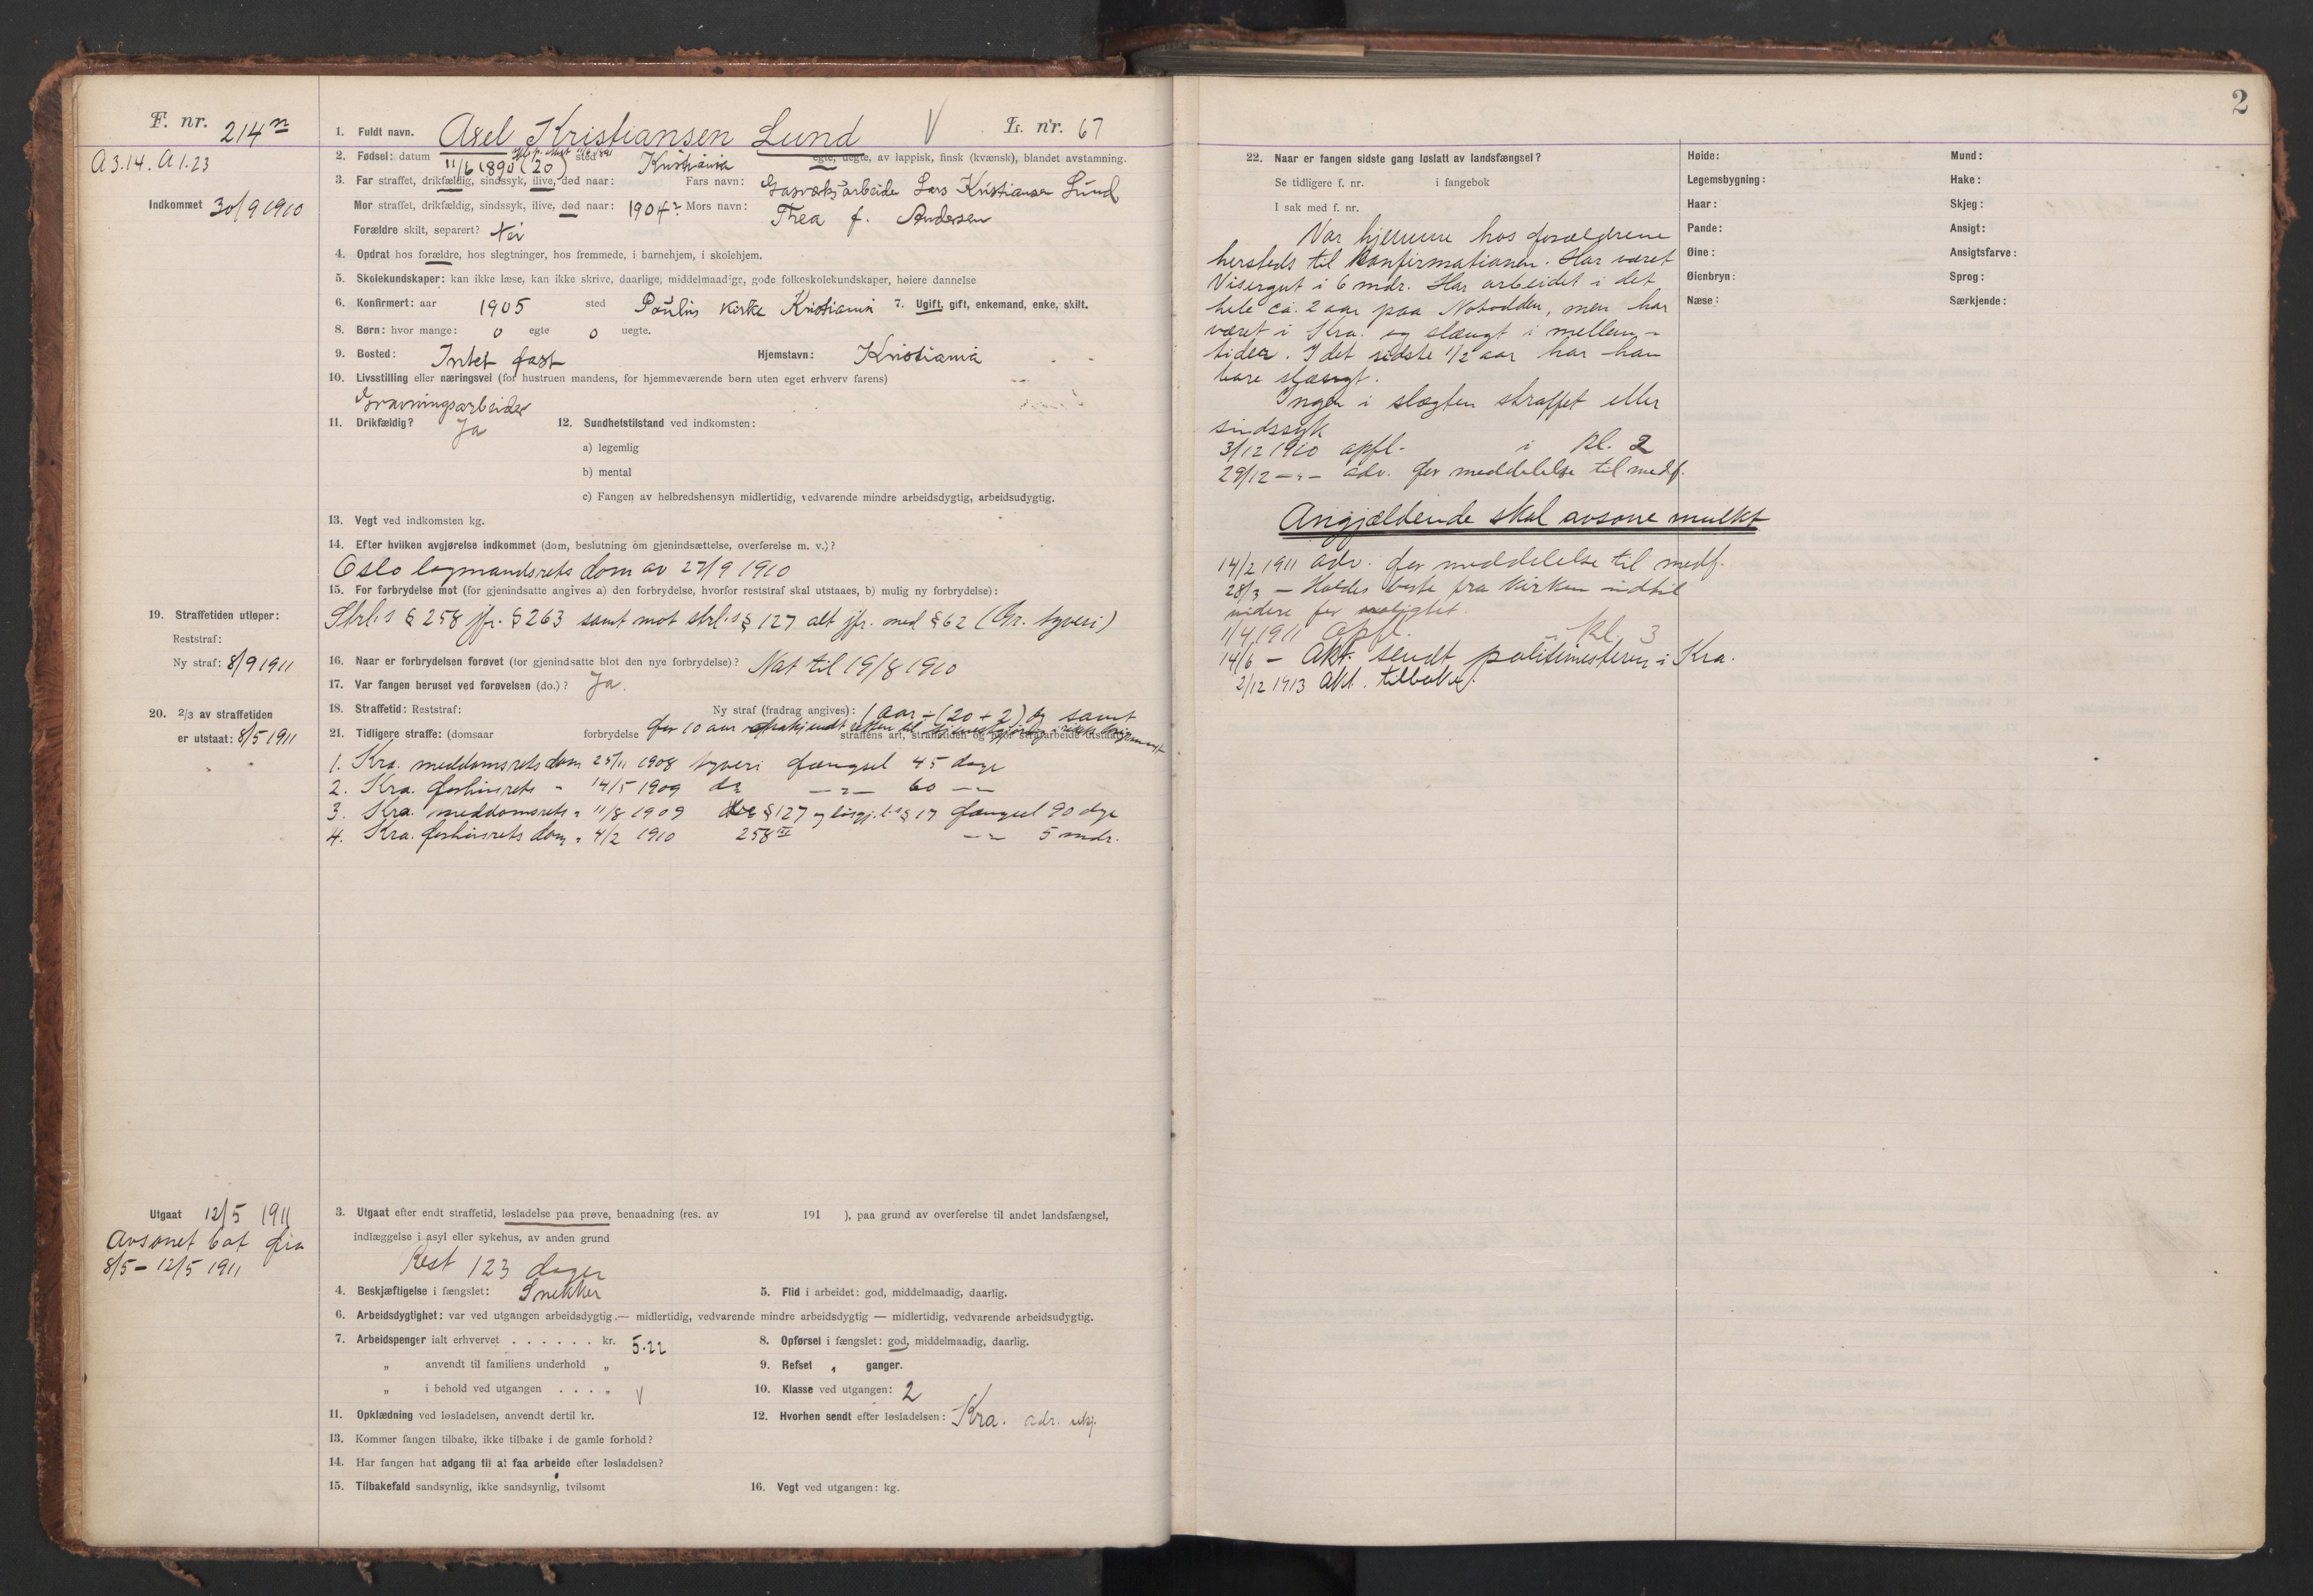 F. nr. 214n
A 3.14. A 1.23
Indkommet 30/9 1910
1. Fuldt navn. Axel Kristiansen Lund V L. nr. 67
2. Fødsel: datum 11/6 1890 (20) 11/6 1891 sted Kristiania egte, uegte, av lappisk, finsk (kvænsk), blandet avstamning.
3. Far straffet, drikfældig, sindssyk, ilive, død naar: Fars navn: Gasværksarbeide Lars Kristiansen Lund
Mor straffet, drikfældig, sindssyk, ilive, død naar: 1904? Mors navn: Thea f. Andersen
Forældre skilt, separert? Nei
4. Opdrat hos forældre, hos slegtninger, hos fremmede, i barnehjem, i skolehjem.
5. Skolekundskaper: kan ikke læse, kan ikke skrive, daarlige, middelmaadige, gode folkeskolekundskaper, høiere dannelse
6. Konfirmert: aar 1905 sted Paulus Kirke Kristiania 7. Ugift, gift, enkemand, enke, skilt.
8. Børn: hvor mange: 0 egte 0 uegte.
9. Bosted: Intet fast Hjemstavn: Kristiania
10. Livsstilling eller næringsvei (for hustruen mandens, for hjemmeværende børn uten eget erhverv farens)
Gravningsarbeider
11. Drikfældig? Ja 12. Sundhetstilstand ved indkomsten:
a) legemlig
b) mental
c) Fangen av helbredshensyn midlertidig, vedvarende mindre arbeidsdygtig, arbeidsudygtig.
13. Vegt ved indkomsten kg.
14. Efter hvilken avgjørelse indkommet (dom, beslutning om gjenindsættelse, overførelse m. v.)?
Oslo lagmandsrets dom av 27/9 1910
15. For forbrydelse mot (for gjenindsatte angives a) den forbrydelse, hvorfor reststraf skal utstaaes, b) mulig ny forbrydelse):
Strl.s § 258 jfr. § 263 samt mot strl.s § 127 alt jfr. med § 62 (Gr. tyveri)
19. Straffetiden utløper:
Reststraf:
Ny straf: 8/9 1911
16. Naar er forbrydelsen forøvet (for gjenindsatte blot den nye forbrydelse)? Nat til 19/8 1910
17. Var fangen beruset ved forøvelsen (do.)? Ja.
20. 2/3 av straffetiden
er utstaat: 8/5 1911
18. Straffetid: Reststraf: Ny straf (fradrag angives): 1 aar ÷ (20 + 2) dg samt
21. Tidligere straffe: (domsaar forbrydelse for 10 aar frakjendt retten til straffens art, straffetiden og hvor strafarbeide utstaat)
1. Kra. meddomsrets dom 25/11 1908 tyveri fængsel 45 dage
2. Kra. forhørsrets " 14/5 1909 do —"— 60 —"—
3. Kra. meddomsrets " 11/8 1909 § 127 og løsgj.l.s § 17 fængsel 90 dge
4. Kra. forhørsrets dom " 4/2 1910 258 III —"— 5 mdr.
Utgaat 12/5 1911
Avsonet bot fra
8/5 – 12/5 1911
3. Utgaat efter endt straffetid, løsladelse paa prøve, benaadning (res. av 191 ), paa grund av overførelse til andet landsfængsel,
indlæggelse i asyl eller sykehus, av anden grund
Rest 123 dager
4. Beskjæftigelse i fængslet: Snekker 5. Flid i arbeidet: god, middelmaadig, daarlig.
6. Arbeidsdygtighet: var ved utgangen arbeidsdygtig — midlertidig, vedvarende mindre arbeidsdygtig — midlertidig, vedvarende arbeidsudygtig.
7. Arbeidspenger ialt erhvervet . . . . . . kr. 5.22 8. Opførsel i fængslet: god, middelmaadig, daarlig.
„ anvendt til familiens underhold „ 9. Refset „ ganger.
„ i behold ved utgangen . . . „ V 10. Klasse ved utgangen: 2
11. Opklædning ved løsladelsen, anvendt dertil kr. 12. Hvorhen sendt efter løsladelsen: Kra. adr. ukj.
13. Kommer fangen tilbake, ikke tilbake i de gamle forhold?
14. Har fangen hat adgang til at faa arbeide efter løsladelsen?
15. Tilbakefald sandsynlig, ikke sandsynlig, tvilsomt 16. Vegt ved utgangen: kg.
2
22. Naar er fangen sidste gang løslatt av landsfængsel?
Se tidligere f. nr. i fangebok
I sak med f. nr.
Var hjemme hos forældrene
hersteds til Konfirmationen. Har været
Visergut i 6 mdr. Har arbeidet i det
hele ca. 2 aar paa Notodden, men har
været i Kra. og slængt i mellem-
tiden. I det sidste 1/2 aar har han
bare slængt.
Ingen i slægten straffet eller
sindssyk
3/12 1910 opfl. i kl. 2
29/12 —"— adv. for meddelelse til medf.
Angjældende skal avsone mulkt
14/2 1911 adv. for meddelelse til medf.
28/3 — Holdes borte fra kirken indtil
videre for
1/4 1911 Opfl. " Kl. 3
14/6 — Akt. sendt politimesteren i Kra.
2/12 1913 Akt. tilbake.
Høide:
Legemsbygning:
Haar:
Pande:
Øine:
Øienbryn:
Næse:
Mund:
Hake:
Skjeg:
Ansigt:
Ansigtsfarve:
Sprog:
Særkjende: